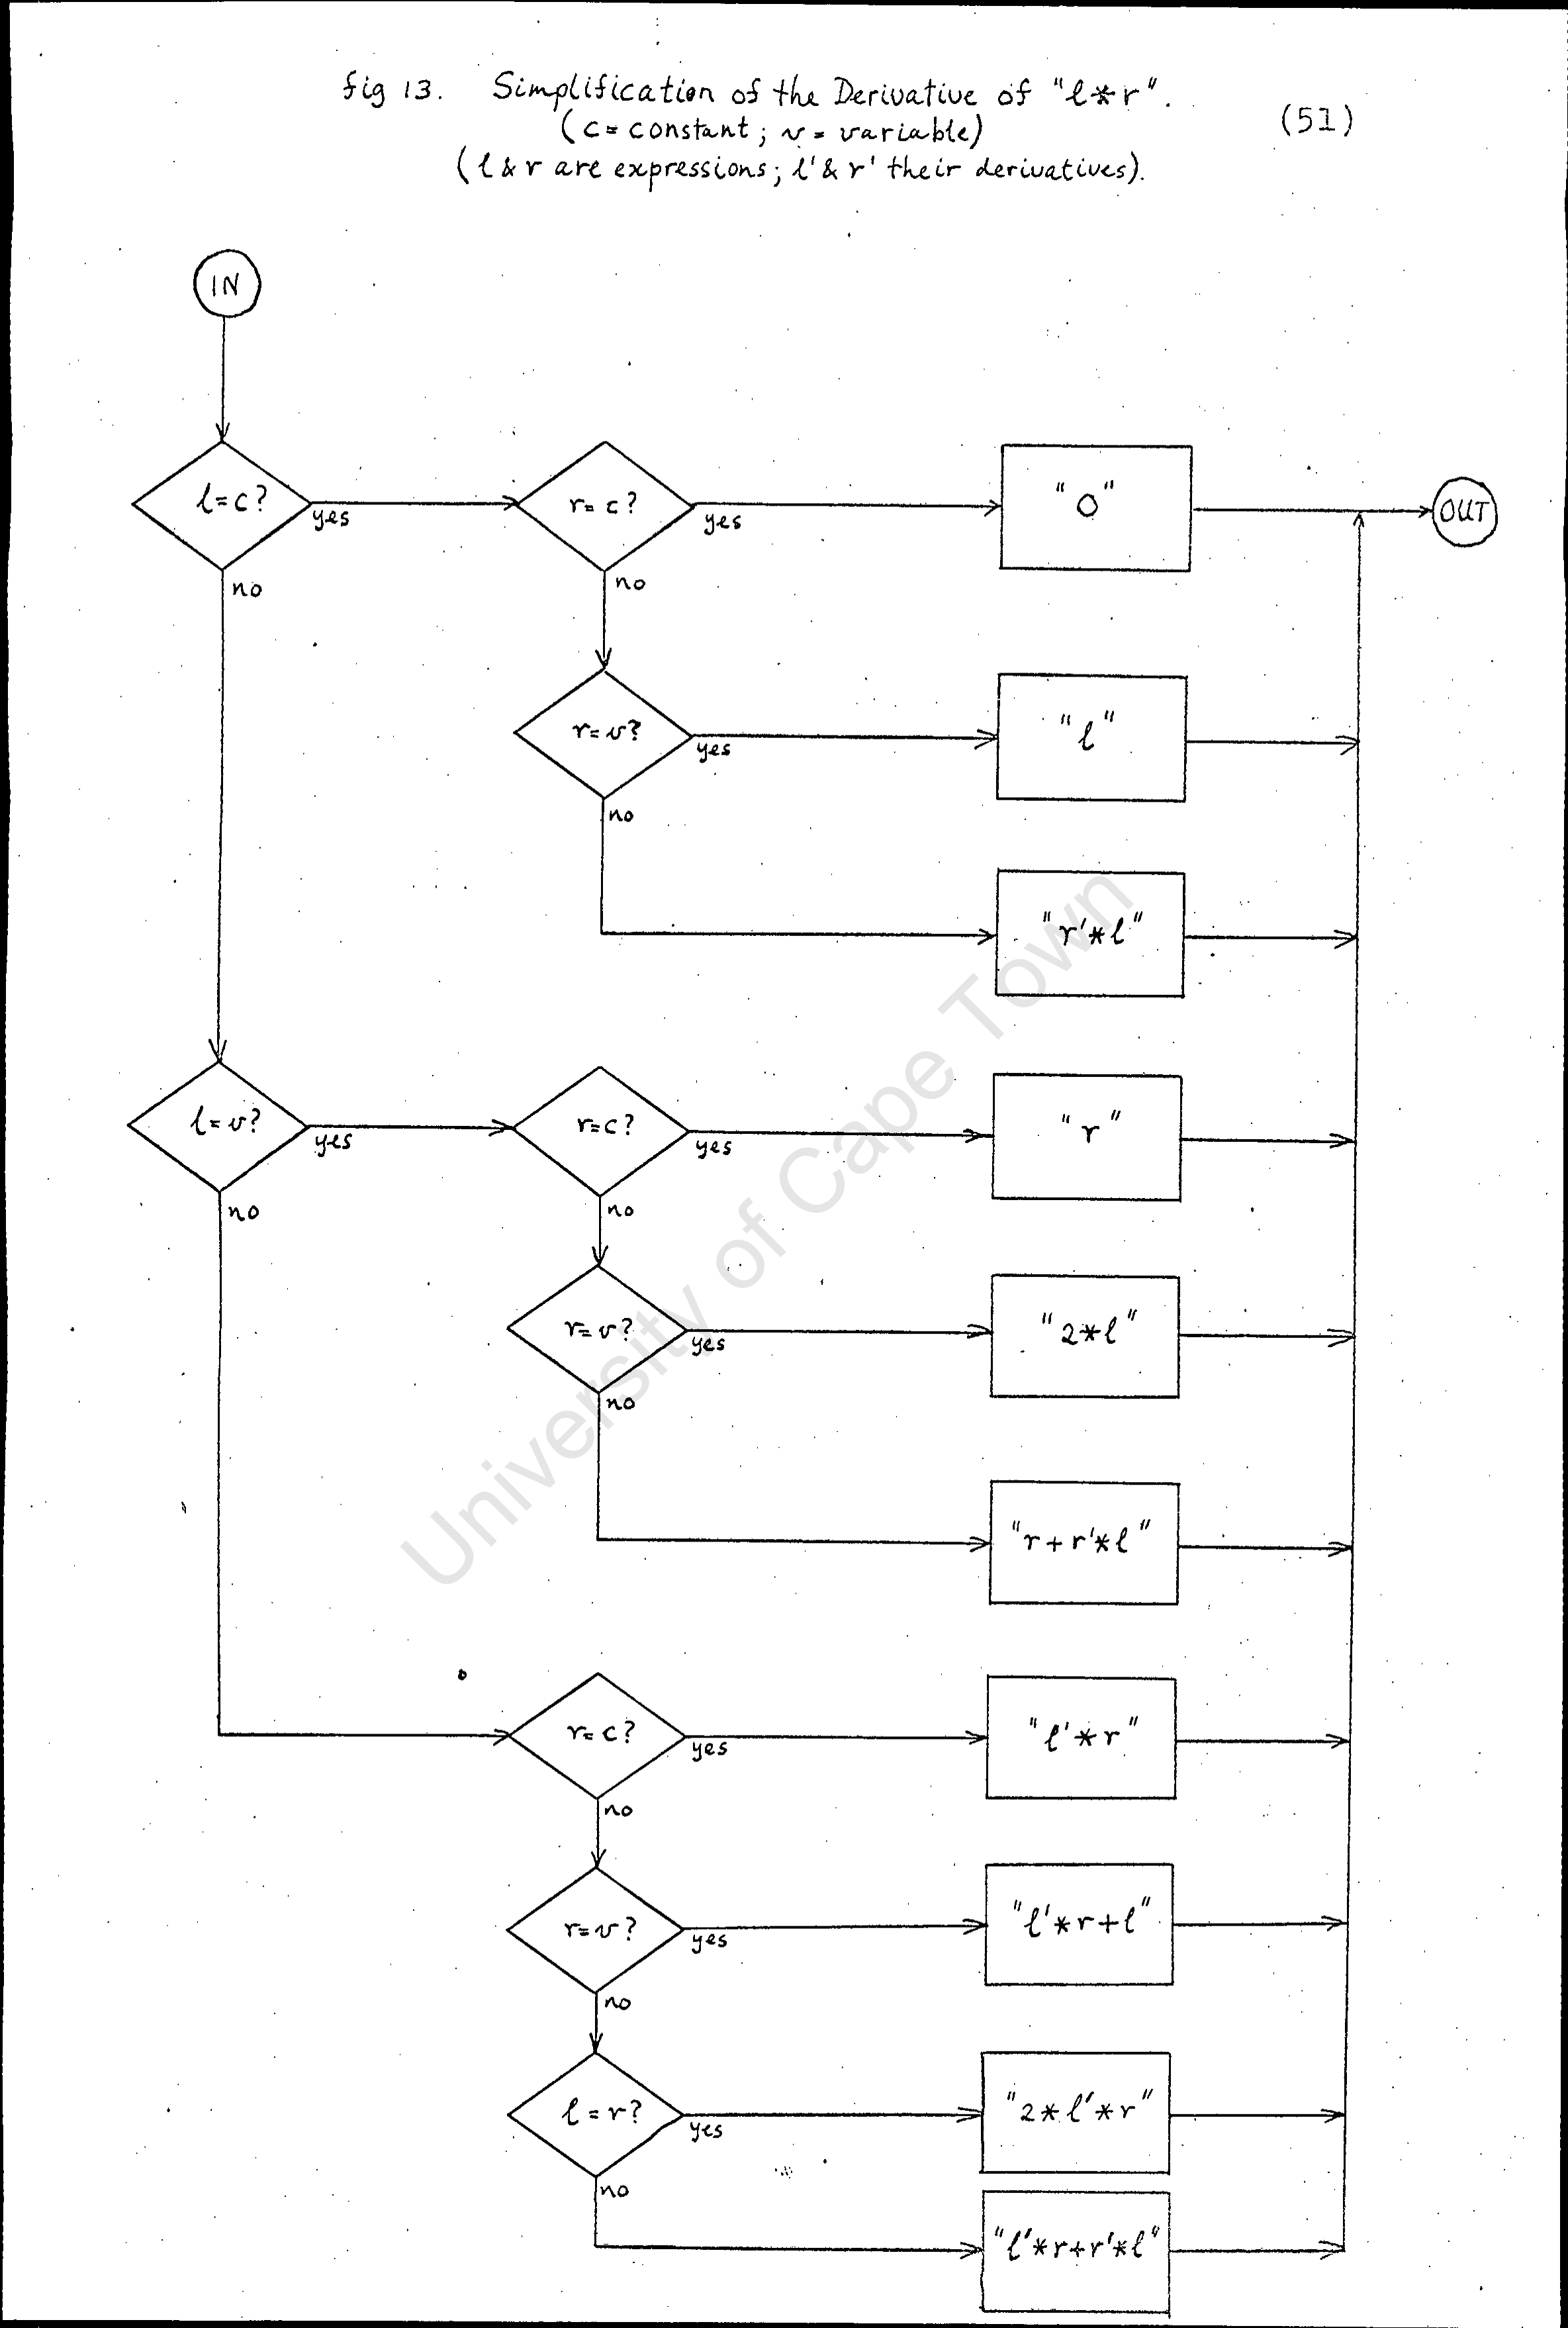 fig 13. Simplification of the Derivative of "l*r".
(c = constant; v = variable)
(l & r are expressions; l' & r' their derivatives).
(51)
IN
l=c?
yes
no
r=c?
yes
no
"0"
OUT
r=v?
yes
no
"l"
"r'*l"
l=v?
yes
no
r=c?
yes
no
"r"
r=v?
yes
no
"2*l"
"r+r'*l"
r=c?
yes
no
"l'*r"
r=v?
yes
no
"l'*r+l"
l=r?
yes
no
"2*l'*r"
"l'*r+r'*l"
University of Cape Town